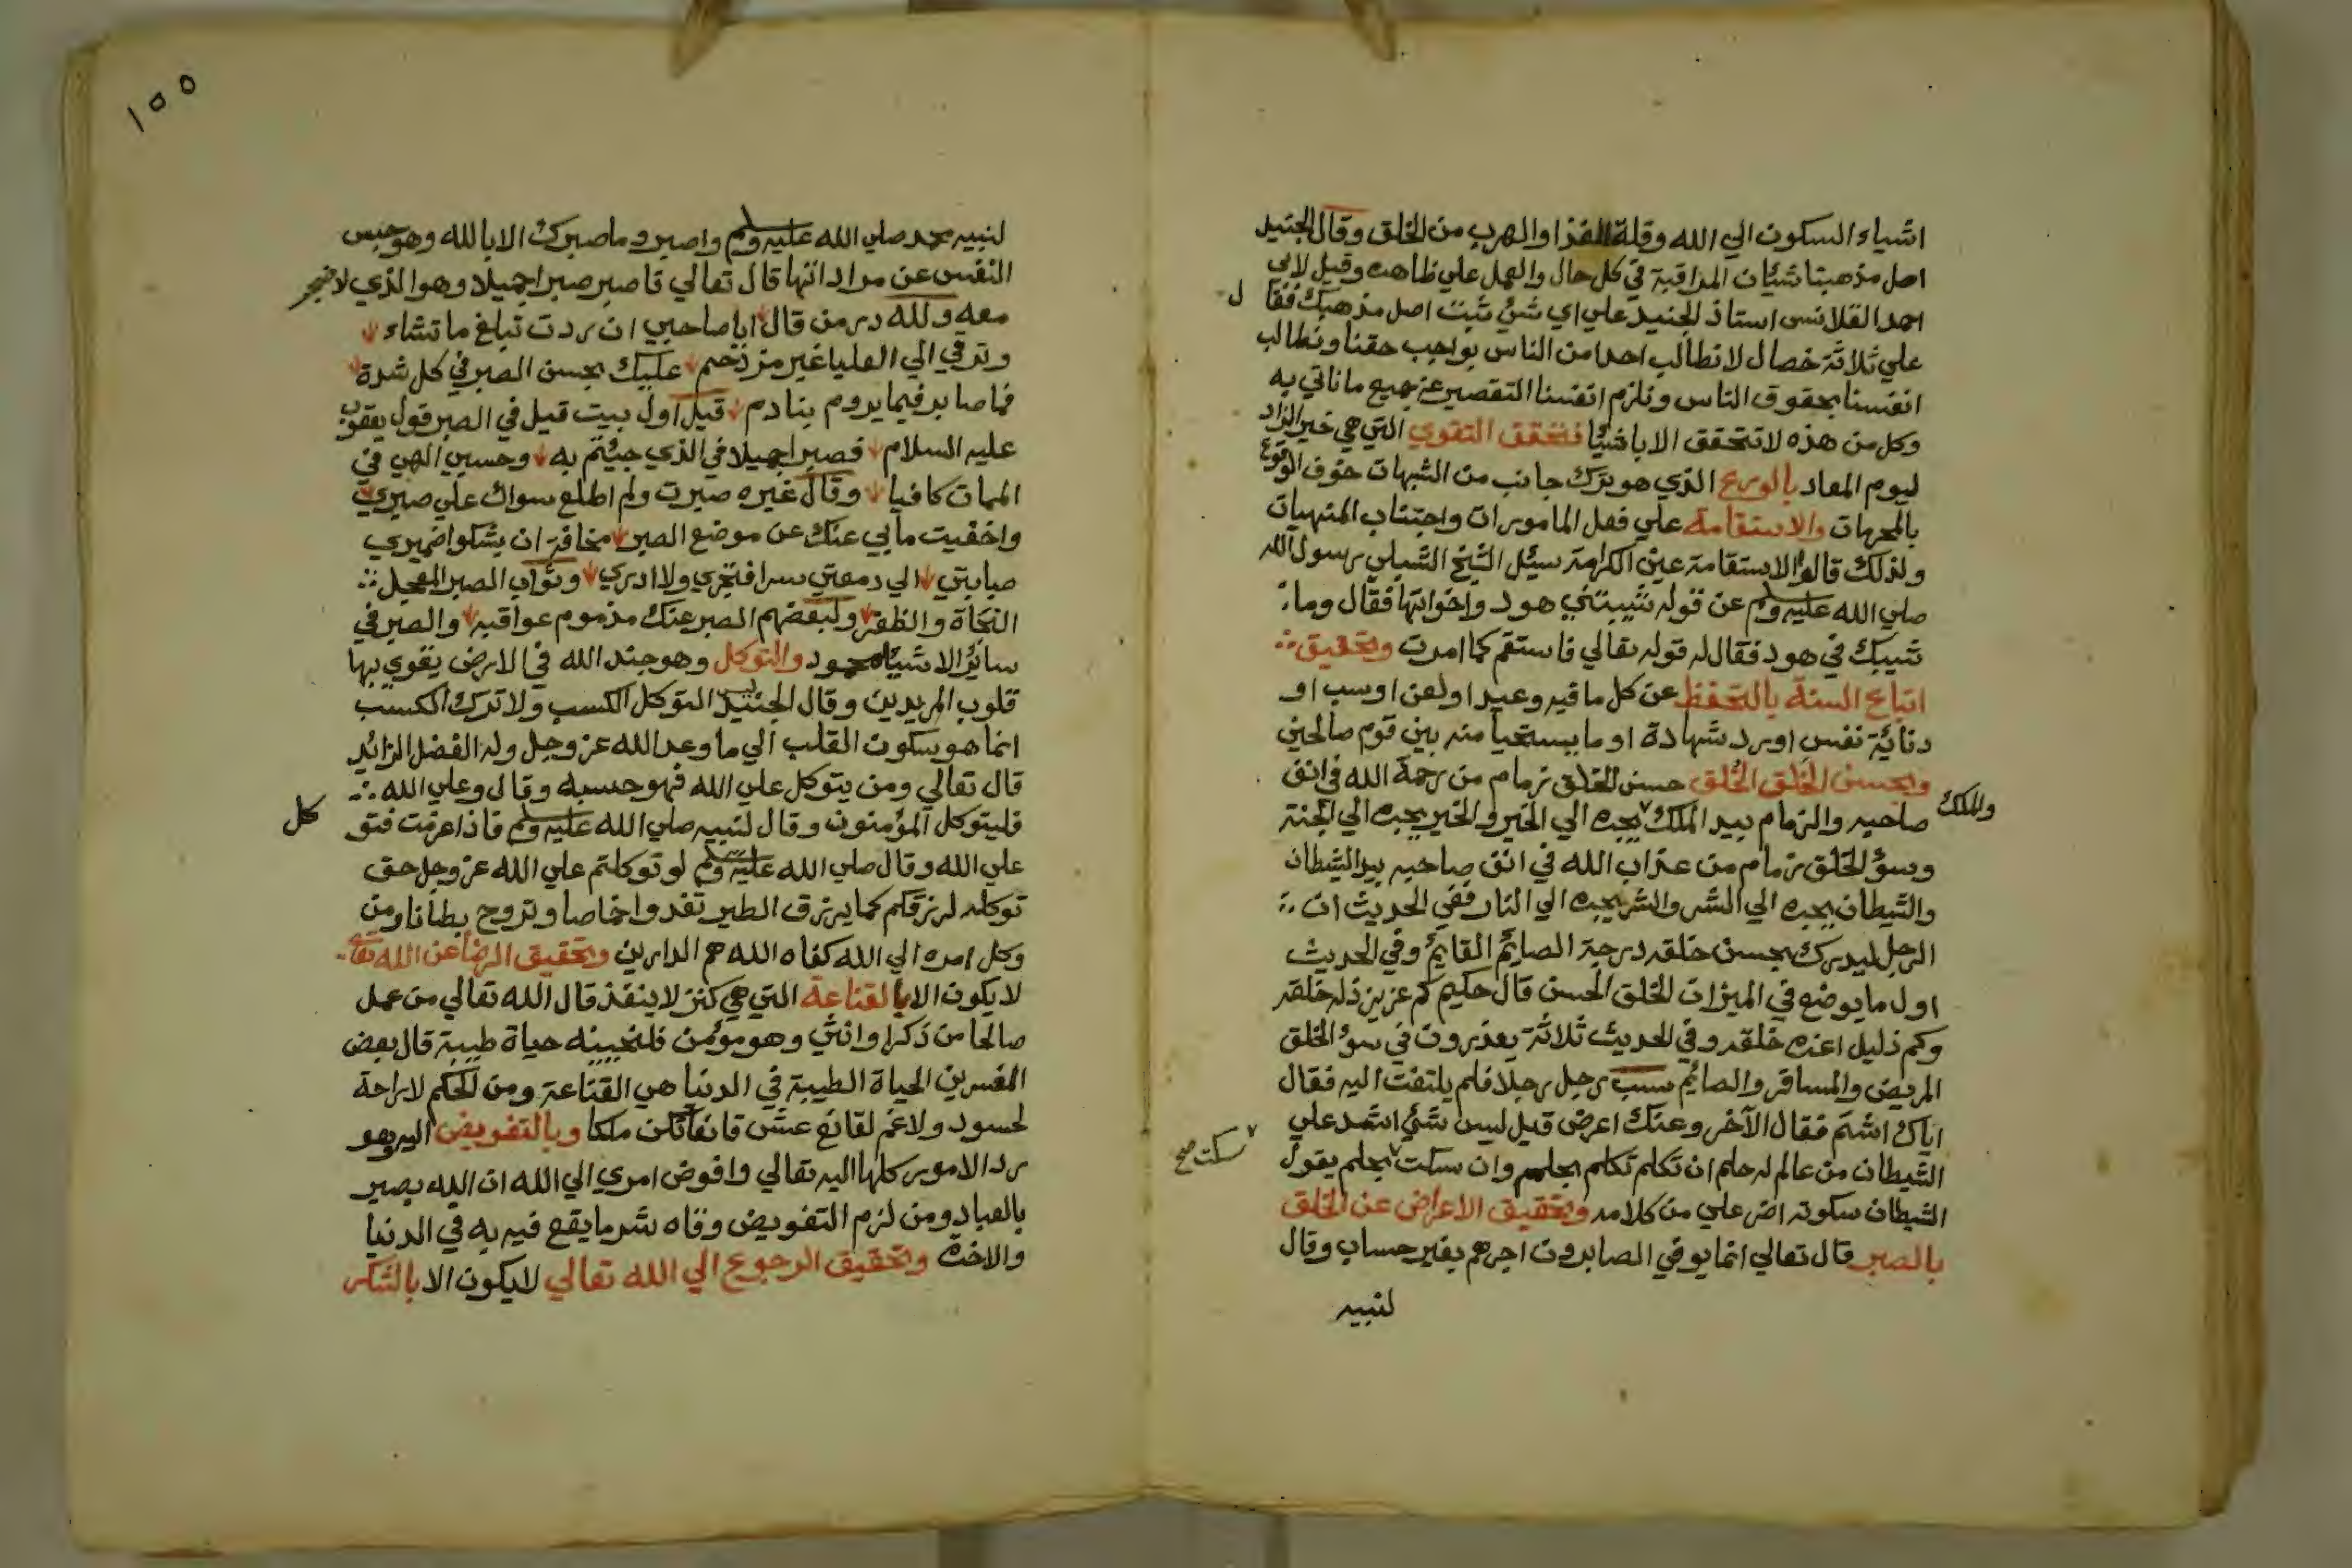 اشياء السكون الي الله وقلة الغذا والهرب من الخلق وقال الجنيد
اصل مذهبنا شيئان المراقبة في كل حال والعمل علي ظاهره وقيل لابي
احمد القلانسى استاذ الجنيد علي اي شئ ثبت اصل مذهبك فقا
ل
علي ثلاثة خصال لا نطالب احدا من الناس بواجب حقنا ونطالب
انفسنا بحقوق الناس ونلزم انفسنا التقصير عن جميع ما ناتي به
وكل من هذه لا تتحقق الا باشيئا فتحقق التقوي التي هي خير الزاد
ليوم المعاد بالورع الذي هو ترك جانب من الشبهات خوف الوقوع
بالمحرمات والاستقامة علي فعل المامورات واجتناب المنهيات
ولذلك قالوا الاستقامة عين الكرامة سيئل الشيخ الشبلي رسول الله
صلي الله عليه وسلم عن قوله شيبتني هود واخواتها فقال وما
شيبك في هود فقال له قوله تعالي فاستقم كما امرت وتحقيق
اتباع السنة بالتحفظ عن كل ما فيه وعيد او لعن او سب او
دنائة نفس او رد شهادة او ما يستحيا منه بين قوم صالحين
وبحسن الخلق الخلق حسن الخلق زمام من رحمة الله في انف
صاحبه والزمام بيد الملك يجره الي الخير والخير يجره الي الجنة
والملك
وسؤ الخلق زمام من عذاب الله في انف صاحبه بيد الشيطان
والشيطان يجره الي الشر والشر يجره الي النار ففي الحديث ان
الرجل ليدرك بحسن خلقه درجة الصائم القايم وفي الحديث
اول ما يوضع في الميزان الخلق الحسن قال حكيم كم عزيز ذله خلقه
وكم ذليل اعزه خلقه وفي الحديث ثلاثة يعذرون في سؤ الخلق
المريض والمسافر والصائم سب رجل رجلا فلم يلتفت اليه فقال
اياك اشتم فقال الآخر وعنك اعرض قيل ليس شئ اشد علي
الشيطان من عالم له حلم ان تكلم تكلم بحلم وان سكت بحلم يقول
سكت صح
الشيطان سكوته اضر علي من كلامه وتحقيق الاعراض عن الخلق
بالصبر قال تعالي انما يوفي الصابرون اجرهم بغير حساب وقال
لنبيه
١٥٥
لنبيه محمد صلي الله عليه وسلم واصبر وما صبرك الا بالله وهو حبس
النفس عن مراداتها قال تعالي فاصبر صبرا جميلا وهو الذي لا ضجر
معه ولله در من قال ايا صاحبي ان ردت تبلغ ما تشاء
وترقي الي العليا غير مزدحم عليك بحسن الصبر في كل شدة
فما صابر فيما يروم بنادم قيل اول بيت قيل في الصبر قول يعقوب
عليه السلام فصبرا جميلا في الذي جيئتم به وحسبي الهي في
المهمات كافيا وقال غيره صبرت ولم اطلع سواك علي صبري
واخفيت ما بي عنك عن موضع الصبر مخافة ان يشكوا ضميري
صبابتي الي دمعتي سرا فتجري ولا ادري وثواب الصبر المعجل
النجاة والظفر ولبعضهم الصبر عنك مذموم عواقبه والصبر في
سائر الاشياء محمود والتوكل وهو جند الله في الارض يقوي بها
قلوب المريدين وقال الجنيد ليس التوكل الكسب ولا ترك الكسب
انما هو سكون القلب الي ما وعد الله عز وجل وله الفضل الزائد
قال تعالي ومن يتوكل علي الله فهو حسبه وقال وعلي الله
فليتوكل المؤمنون وقال لنبيه صلي الله عليه وسلم فاذا عزمت فتو
كل
علي الله وقال صلي الله عليه وسلم لو توكلتم علي الله عز وجل حق
توكله لرزقكم كما يرزق الطير تغدوا خماصا وتروح بطانا ومن
وكل امره الي الله كفاه الله هم الدارين وتحقيق الرضا عن الله تعا
لا يكون الا بالقناعة التي هي كنز لا ينفذ قال الله تعالي من عمل
صالحا من ذكرا وانثي وهو مؤمن فلنحيينه حياة طيبة قال بعض
المفسرين الحياة الطيبة في الدنيا هي القناعة ومن الحكم لا راحة
لحسود ولا غم لقانع عش قانعا تكن ملكا وبالتفويض اليه وهو
رد الامور كلها اليه تعالي وافوض امري الي الله ان الله بصير
بالعباد ومن لزم التفويض وقاه شر ما يقع فيه به في الدنيا
والاخرة وتحقيق الرجوع الي الله تعالي لا يكون الا بالشكر